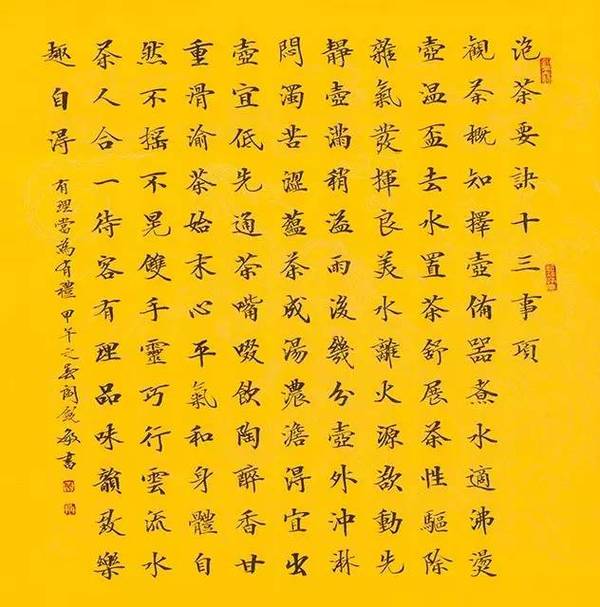 泡茶要訣十三事項
觀茶概知擇壺備器煮水適沸燙
壺溫盃去水置茶舒展茶性驅除
雜氣發揮良美水離火源欲動先
靜壺滿稍溢雨後幾分壺外沖淋
悶濁苦澀蘊茶成湯濃澹得宜出
壺宜低先通茶嘴啜飲陶醉香甘
重滑渝茶始末心平氣和身體自
然不搖不晃雙手靈巧行雲流水
茶人合一待客有理品味韻致樂
趣自得
有理當為有禮 甲午之 敏書